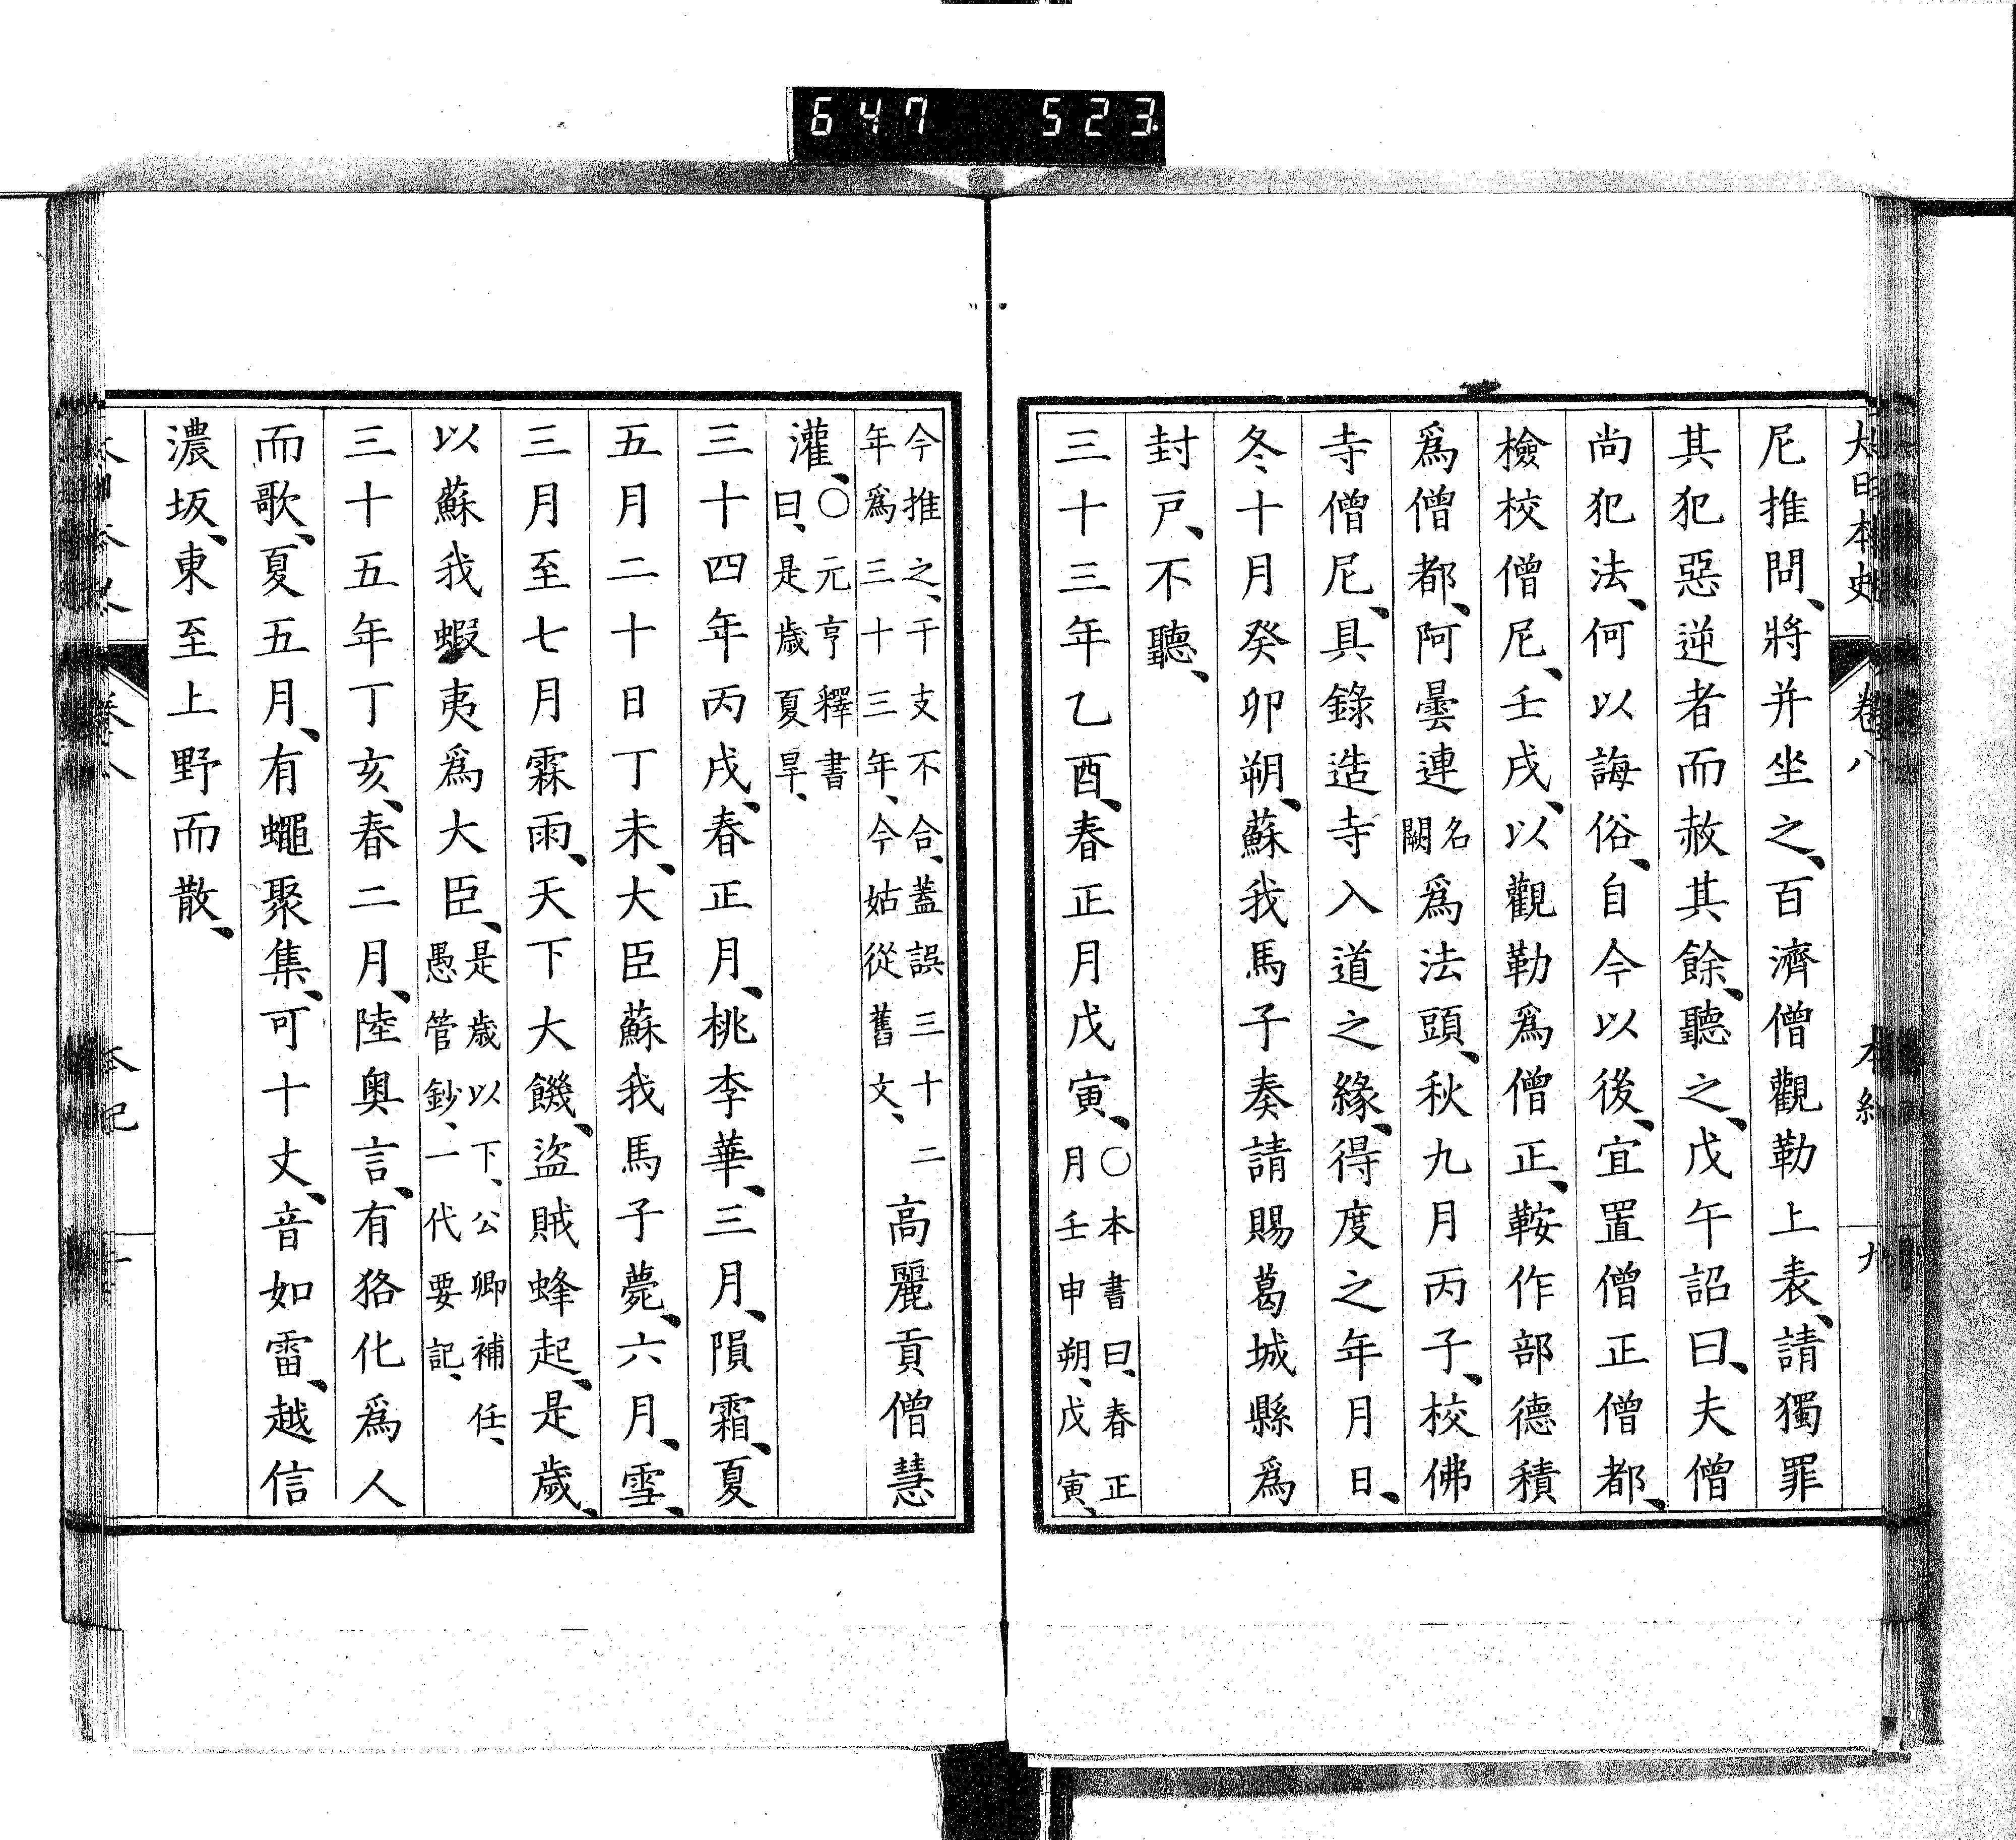 647 523
大日本史 卷八 本紀 九
尼推問、將并坐之、百濟僧觀勒上表、請獨罪
其犯惡逆者而赦其餘、聽之、戊午詔曰、夫僧
尚犯法、何以誨俗、自今以後、宜置僧正僧都、
檢校僧尼、壬戌、以觀勒爲僧正、鞍作部德積
爲僧都、阿曇連名闕爲法頭、秋九月丙子、校佛
寺僧尼、具錄造寺入道之緣、得度之年月日、
冬十月癸卯朔、蘇我馬子奏請賜葛城縣爲
封戸、不聽、
三十三年乙酉、春正月戊寅、〇本書曰、春正月壬申朔、戊寅、
今推之、干支不合、蓋誤三十二年爲三十三年、今姑從舊文、高麗貢僧慧
灌、〇元亨釋書曰、是歳夏旱、
三十四年丙戌、春正月、桃李華、三月、隕霜、夏
五月二十日丁未、大臣蘇我馬子薨、六月、雪、
三月至七月霖雨、天下大饑、盜賊蜂起、是歳、
以蘇我蝦夷爲大臣、是歳以下、公卿補任、愚管鈔、一代要記、
三十五年丁亥、春二月、陸奥言、有狢化爲人
而歌、夏五月、有蠅聚集、可十丈、音如雷、越信
濃坂、東至上野而散、